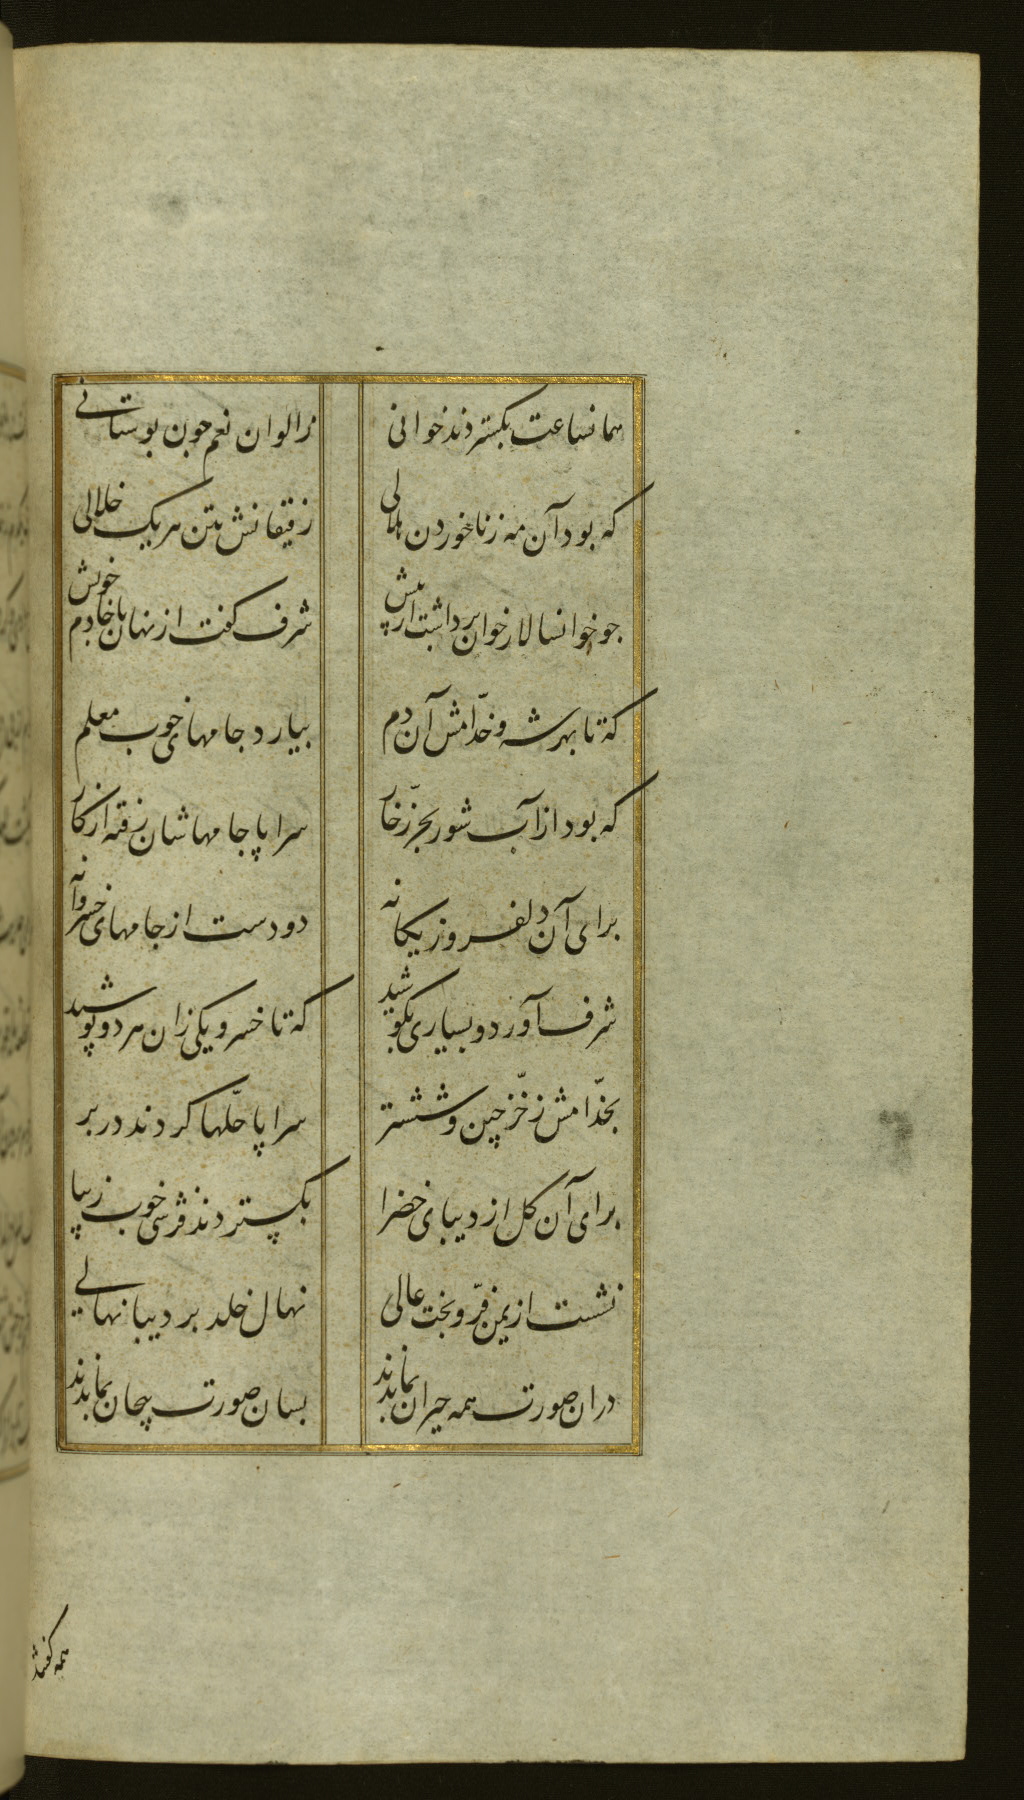 همانساعت بکستردند خوانی
زالوان نعم جون بوستانی
که بود آن مه زنا خوردن هلالی
رفیقانش بتن هریک خلالی
جو خوانسالار خوان برداشت از پیش
شرف کفت از نهان با خادم خویش
که تا بهر شه و خدّامش آن دم
بیارد جامهای خوب معلم
که بود از آب شور بحر زخّار
سراپا جامهاشان رفته از کار
برای آن دلفروز یکانه
دو دست از جامهای خسروانه
شرف آورد و بسیاری بکوشید
که تا خسرو یکی زان هر دو پوشید
بخدّامش ز خزّ چین و ششتر
سراپا حلّها کردند در بر
برای آن کل از دیبای خضرا
بکستردند فرشی خوب زیبا
نشست از یمن فرّ و بخت عالی
نهال خلد بر دیبا نهالی
دران صورت همه حیران بماندند
بسان صورت بیجان بماندند
همه کفتند